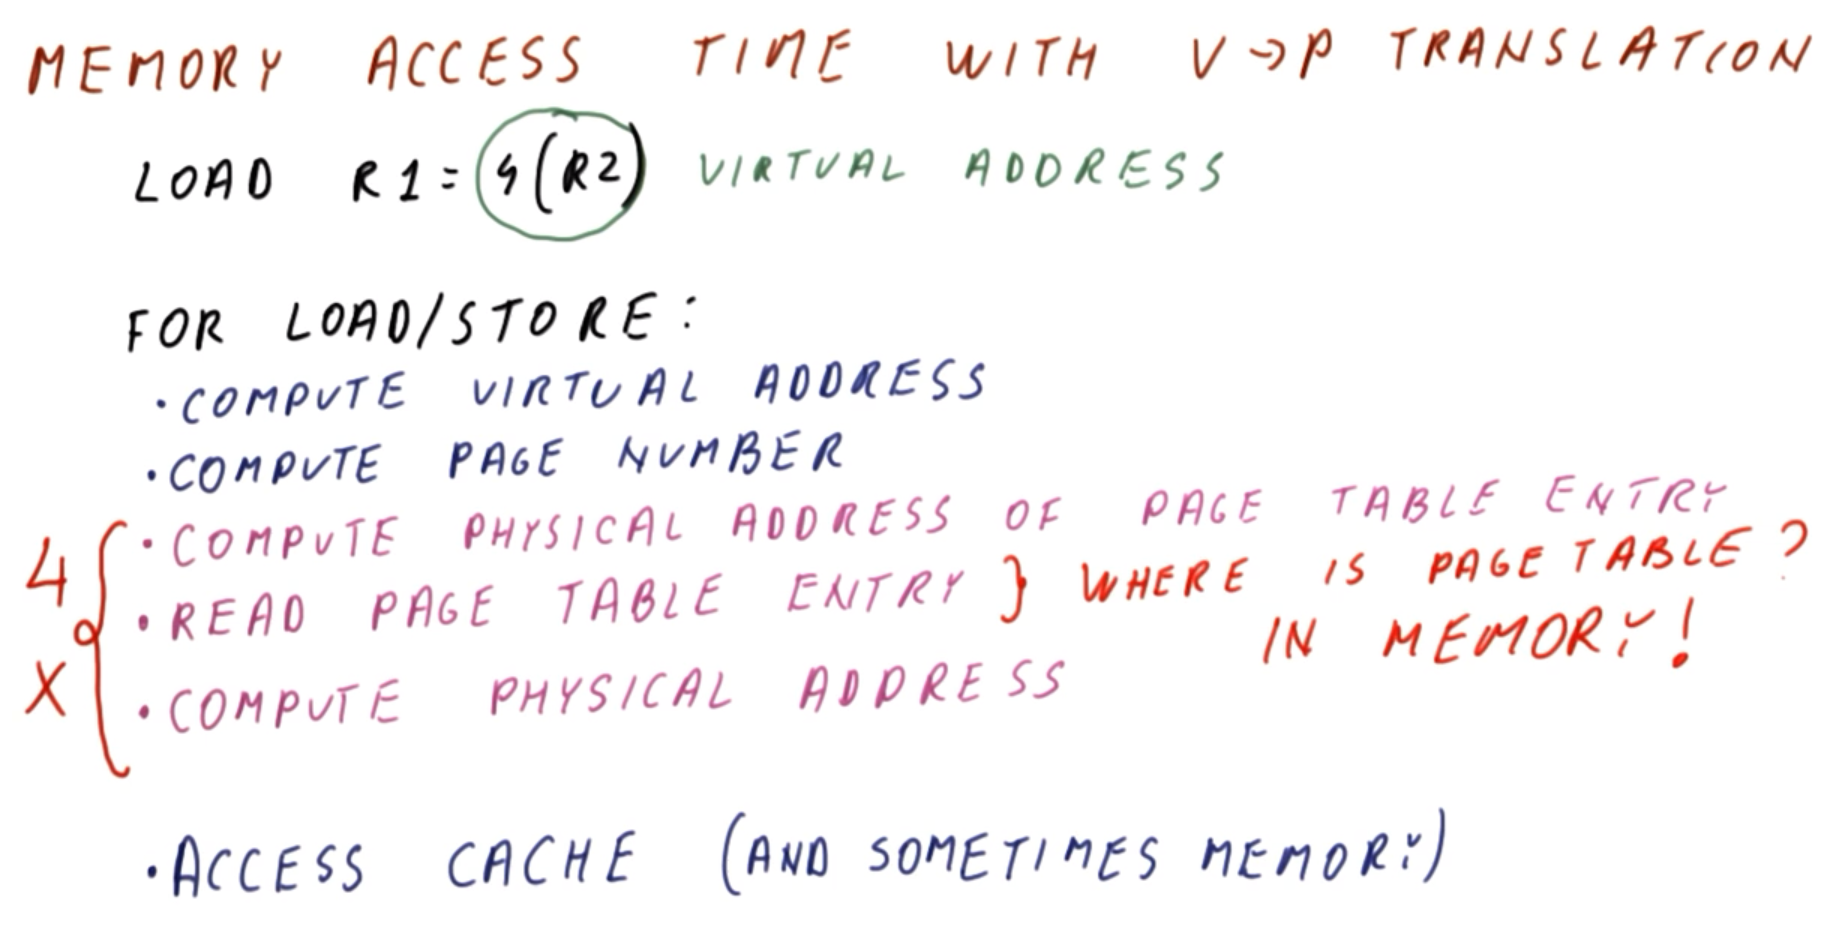 MEMORY ACCESS TIME WITH V→P TRANSLATION
LOAD R1=4(R2) VIRTUAL ADDRESS
FOR LOAD/STORE:
• COMPUTE VIRTUAL ADDRESS
• COMPUTE PAGE NUMBER
• COMPUTE PHYSICAL ADDRESS OF PAGE TABLE ENTRY
4
• READ PAGE TABLE ENTRY } WHERE IS PAGE TABLE?
IN MEMORY!
X
• COMPUTE PHYSICAL ADDRESS
• ACCESS CACHE (AND SOMETIMES MEMORY)